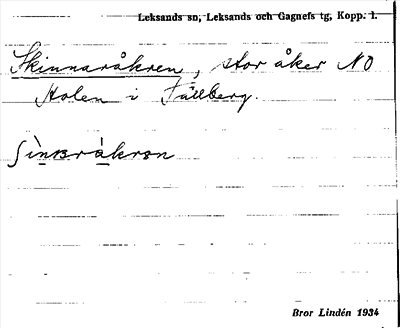 Leksands sn, Leksands och Gagnefs tg, Kopp. l.
Skinnaråkren, stor åker NO
Stolen i Tällberg.
ʃìnɐråkrən
Bror Lindén 1934